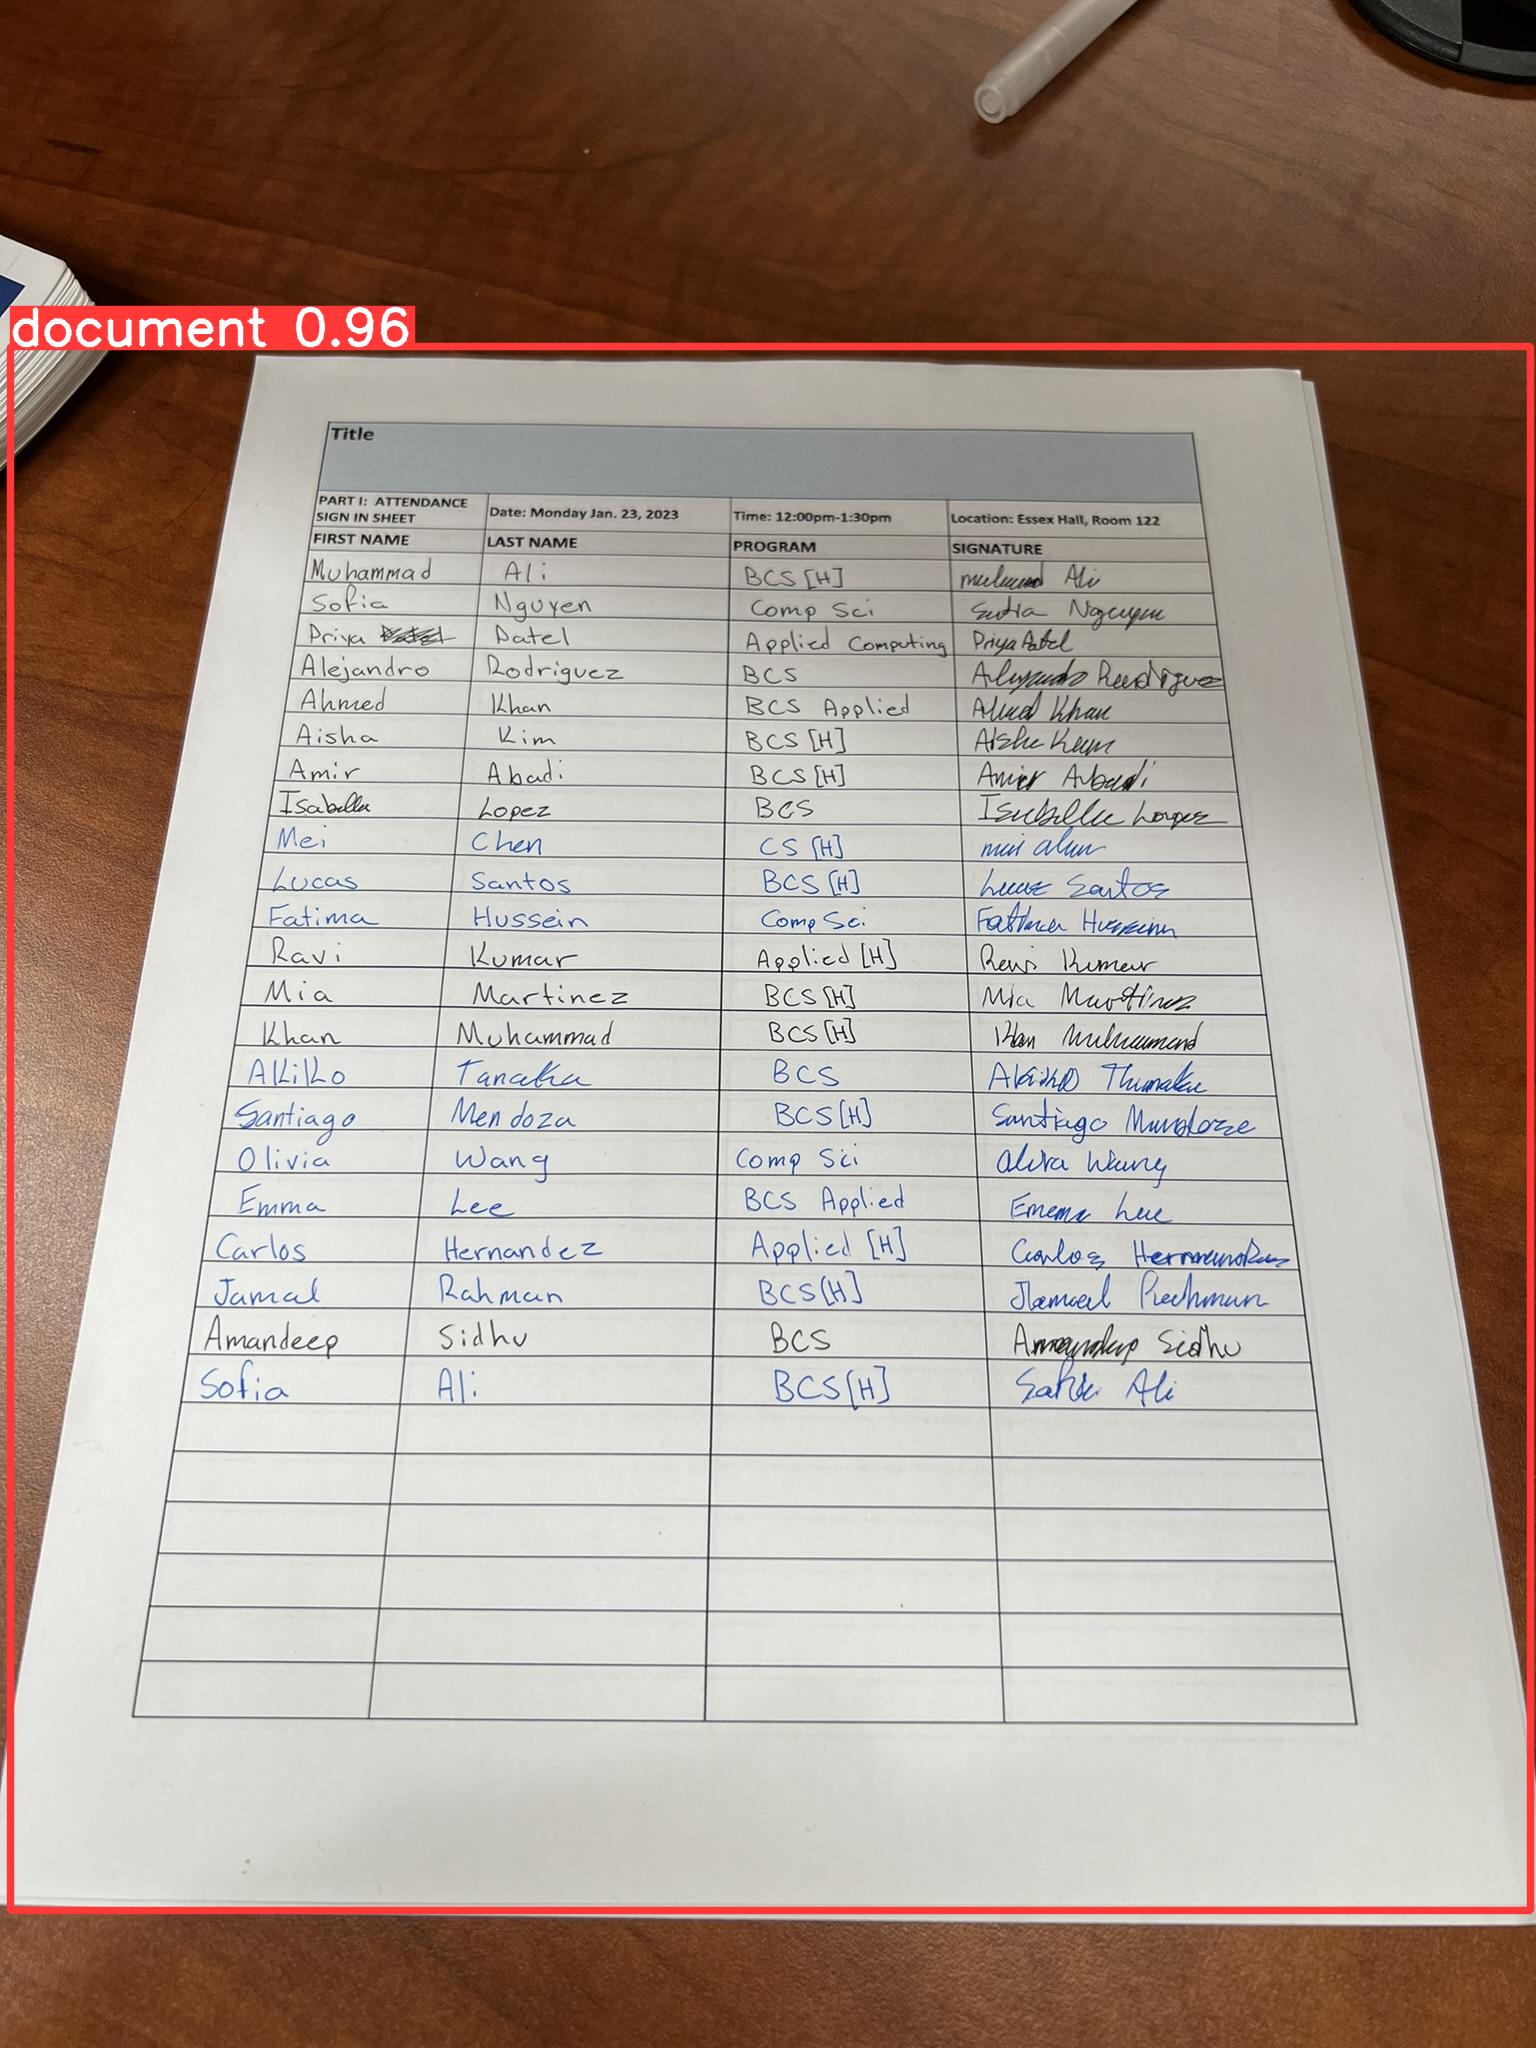 document 0.96
Title
PART I: ATTENDANCE SIGN IN SHEET Date: Monday Jan. 23, 2023 Time: 12:00pm-1:30pm Location: Essex Hall, Room 122
FIRST NAME LAST NAME PROGRAM SIGNATURE
Muhammad Ali BCS [H] Ali
Sofia Nguyen Comp Sci Nguyen
Priya Patel Applied Computing Priya Patel
Alejandro Rodriguez BCS Rodriguez
Ahmed Khan BCS Applied Khan
Aisha Kim BCS [H]
Amir Abadi BCS [H] Amir Abadi
Isabella Lopez BCS Isabella Lopez
Mei Chen CS [H]
Lucas Santos BCS [H] Lucas Santos
Fatima Hussein Comp Sci Fatima Hussein
Ravi Kumar Applied [H] Ravi Kumar
Mia Martinez BCS [H] Mia Martinez
Khan Muhammad BCS [H] Khan Muhammad
Akiko Tanaka BCS Akiko
Santiago Mendoza BCS [H] Santiago
Olivia Wang Comp Sci Wang
Emma Lee BCS Applied Lee
Carlos Hernandez Applied [H] Carlos
Jamal Rahman BCS [H] Rahman
Amandeep Sidhu BCS Amandeep Sidhu
Sofia Ali BCS [H] Ali